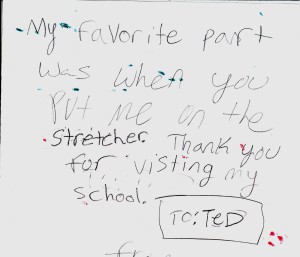 My favorite part
was when you
Put me on the
stretcher. Thank you
for visting my
school.
TO: TeD